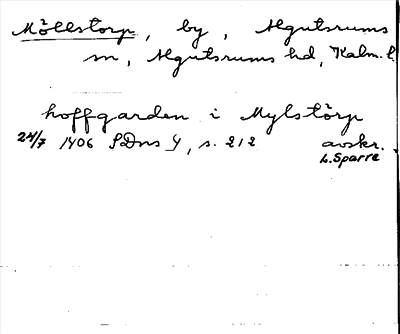 Möllstorp, by, Algutsrums
sn, Algutsrums hd, Kalm. l.
hoffgarden i Mylstörp
24/7 1406 SDns 1, s. 212 avskr.
L. Sparre